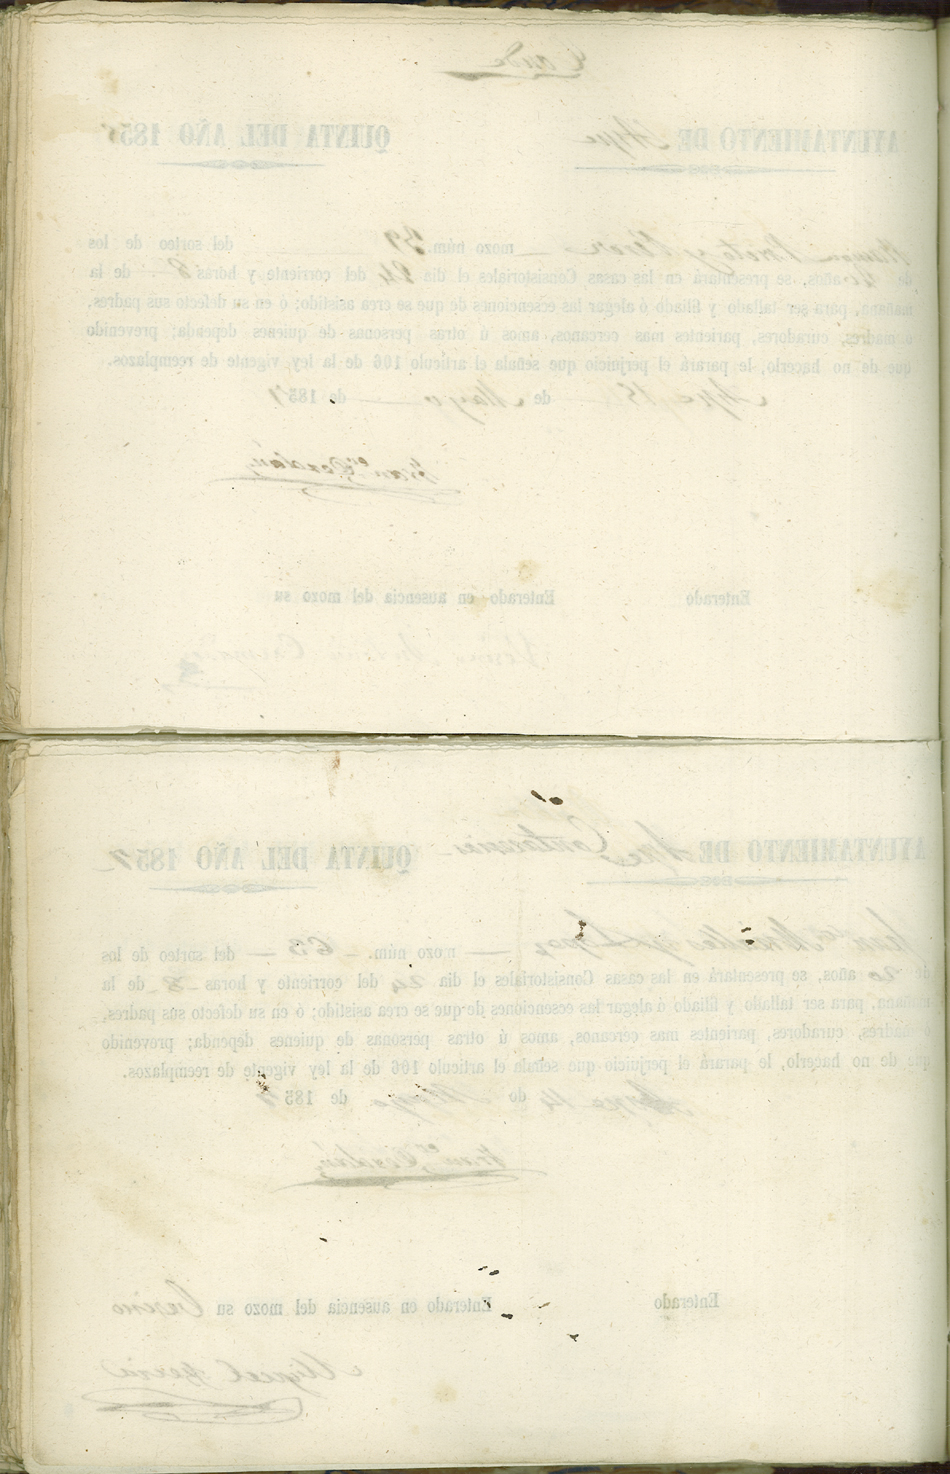 Tarde
AYUNTAMIENTO DE Aspe QUINTA DEL AÑO 185
mozo núm. 39 del sorteo de los
de 20 años, se presentará en las casas Consistoriales el dia 24 del corriente y horas 8 de la
mañana, para ser tallado y filiado ó alegar las ecsenciones de que se crea asistido; ó en su defecto sus padres,
ó madres, curadores, parientes mas cercanos, amos ú otras personas de quienes dependa; prevenido
que de no hacerlo, le parará el perjuicio que señala el artículo 106 de la ley vigente de reemplazos.
Aspe 15 de Mayo de 1857
Enterado Enterado en ausencia del mozo su
AYUNTAMIENTO DE Aspe QUINTA DEL AÑO 1857
mozo núm. 63 del sorteo de los
de 20 años, se presentará en las casas Consistoriales el dia 24 del corriente y horas 8 de la
mañana, para ser tallado y filiado ó alegar las ecsenciones de que se crea asistido; ó en su defecto sus padres,
ó madres, curadores, parientes mas cercanos, amos ú otras personas de quienes dependa; prevenido
que de no hacerlo, le parará el perjuicio que señala el artículo 106 de la ley vigente de reemplazos.
Aspe 14 de Mayo de 1857
Enterado Enterado en ausencia del mozo su Vecino
Miguel